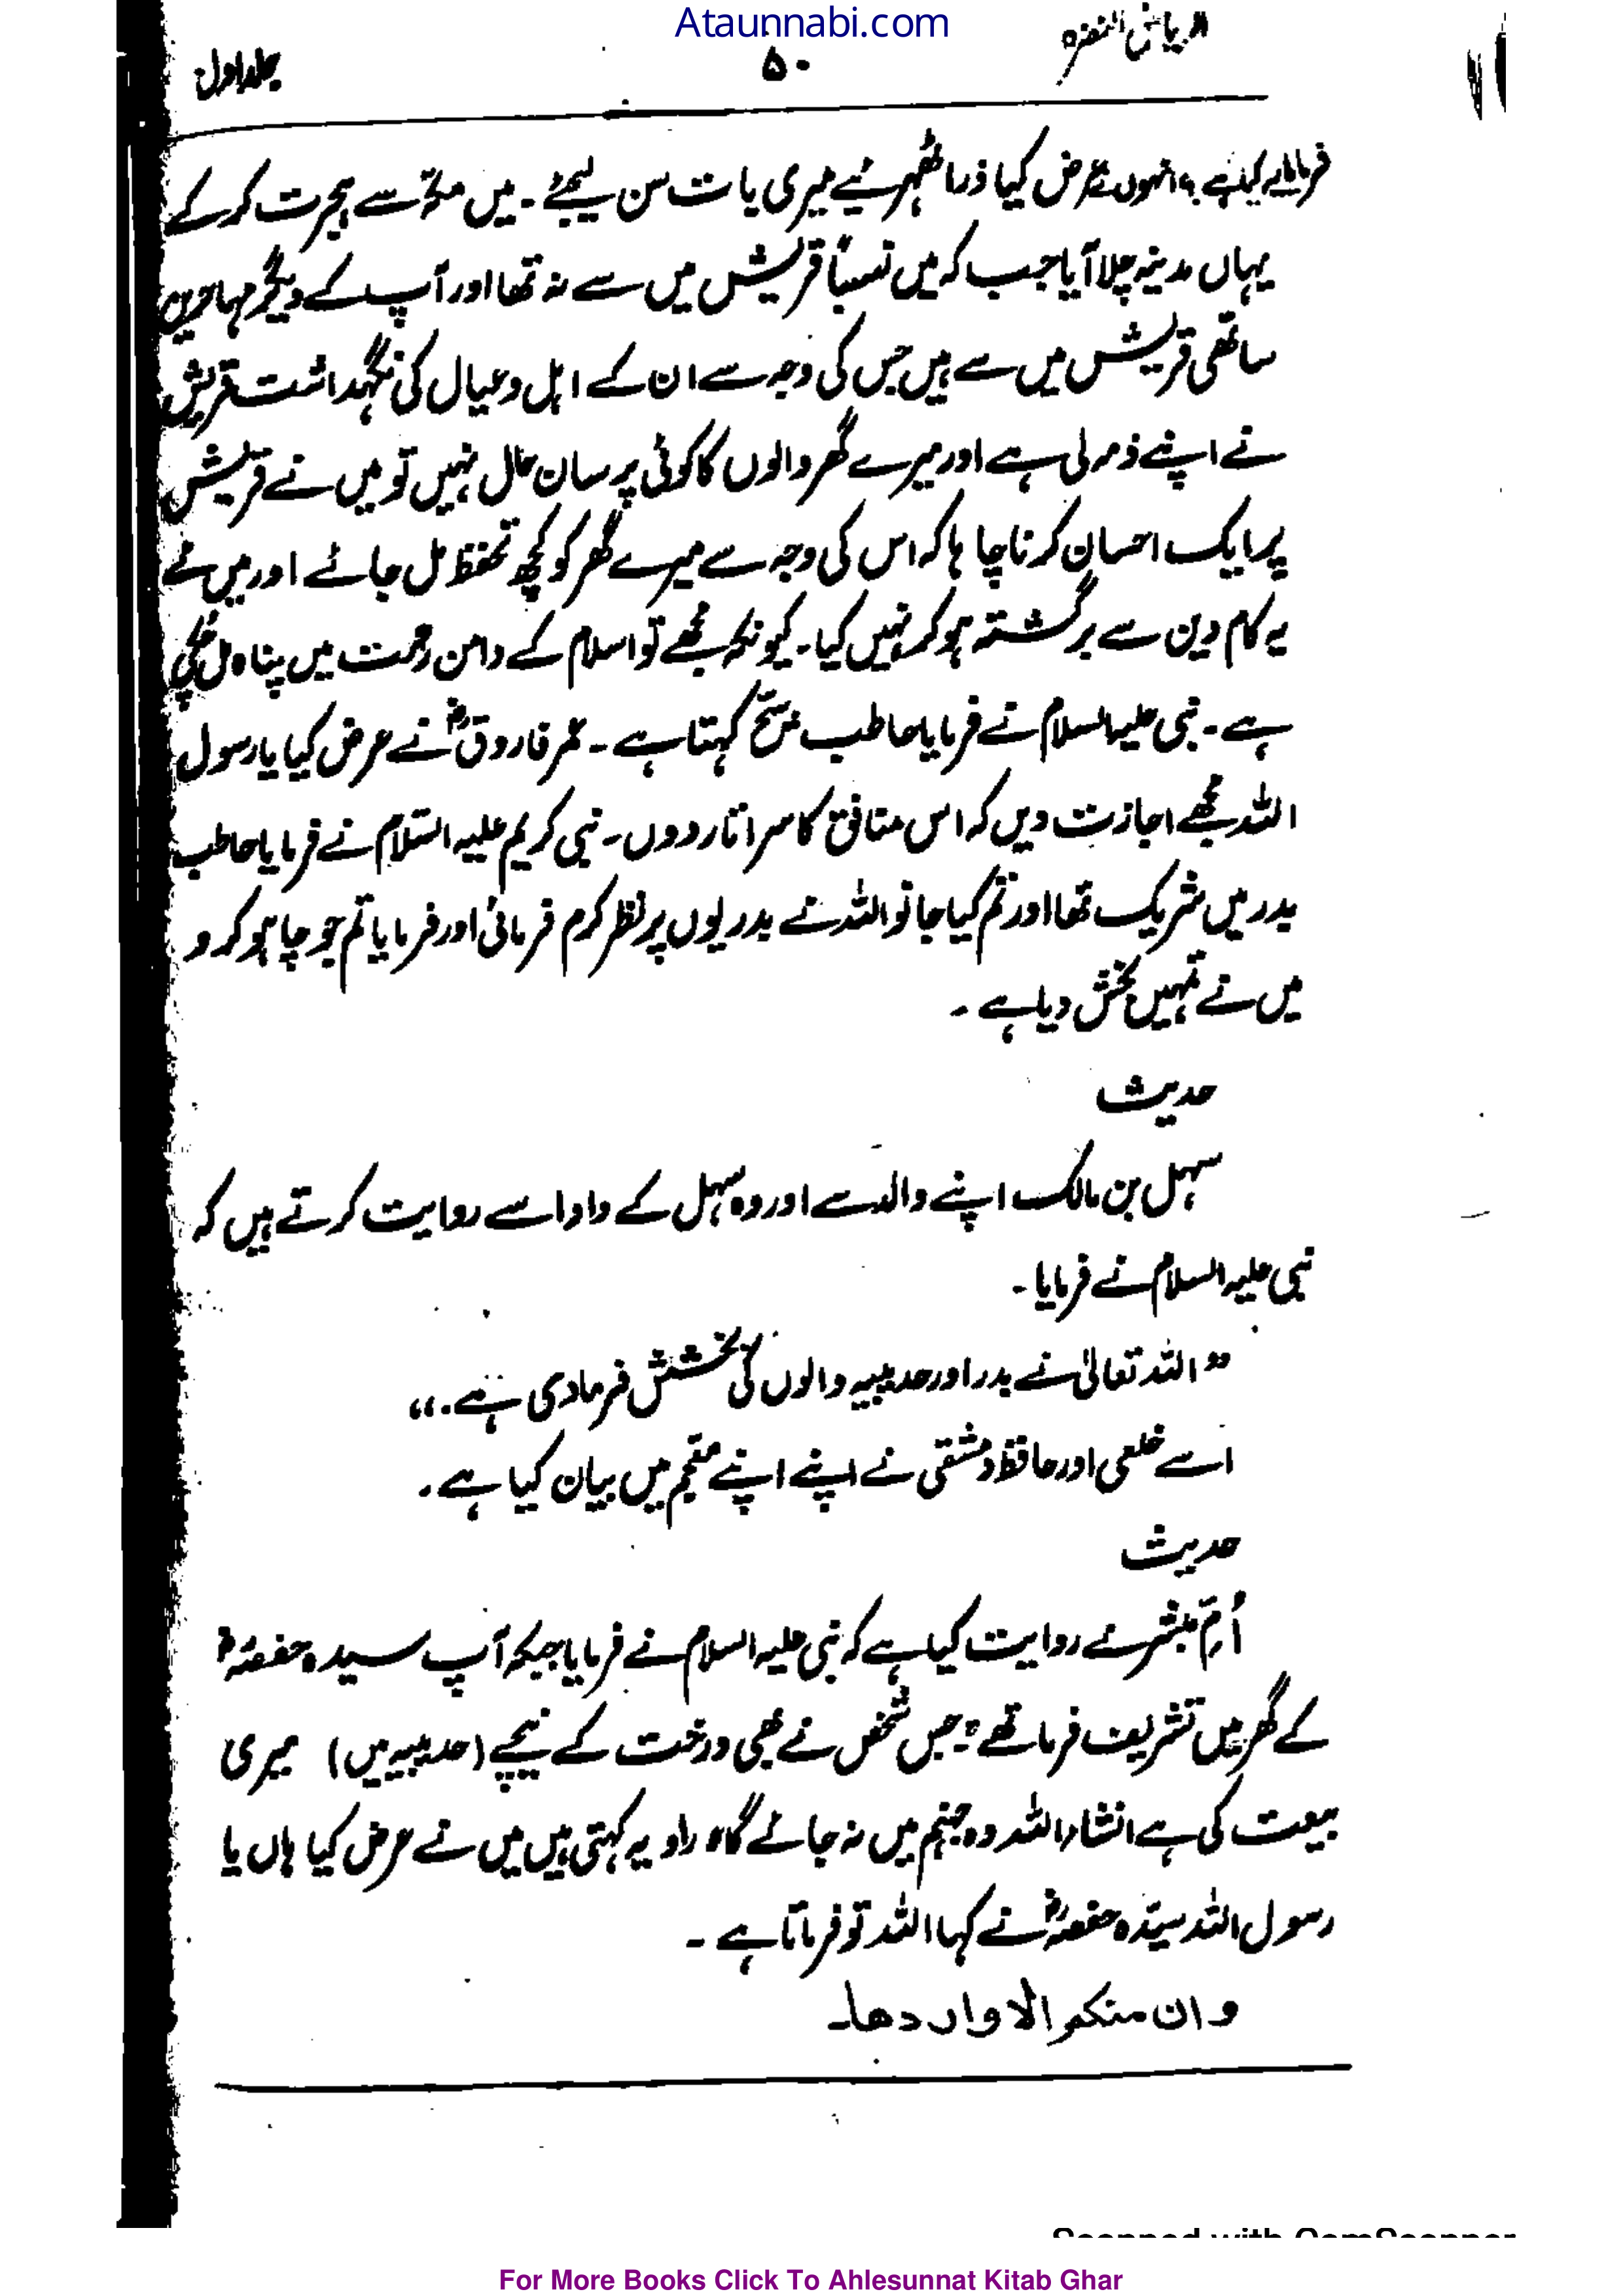 Ataunnabi.com
الریاض النضرہ ۵۰ جلد اول
فرمایا یہ کیا ہے ؟ انہوں نے عرض کیا ذرا ٹھہرئیے میری بات سن لیجئے ۔ میں مکہ سے ہجرت کر کے
یہاں مدینہ چلا آیا جب کہ میں نسباً قریش میں سے نہ تھا اور آپ کے دیگر مہاجرین
ساتھی قریش میں سے ہیں جس کی وجہ سے ان کے اہل و عیال کی نگہداشت قریش
نے اپنے ذمہ لی ہے اور میرے گھر والوں کا کوئی پرسان حال نہیں تو میں نے قریش
پر ایک احسان کرنا چاہا کہ اس کی وجہ سے میرے گھر کو کچھ تحفظ مل جائے اور میں نے
یہ کام دین سے برگشتہ ہو کر نہیں کیا ۔ کیونکہ مجھے تو اسلام کے دامن رحمت میں پناہ مل چکی
ہے ۔ نبی علیہ السلام نے فرمایا حاطب سچ کہتا ہے ۔ عمر فاروقؓ نے عرض کیا یا رسول
اللہ مجھے اجازت دیں کہ اس منافق کا سر اتار دوں ۔ نبی کریم علیہ السّلام نے فرمایا حاطب
بدر میں شریک تھا اور تم کیا جانو اللہ نے بدریوں پر نظر کرم فرمائی اور فرمایا تم جو چاہو کرو
میں نے تمہیں بخش دیا ہے ۔
حدیث
سہل بن مالک اپنے والد سے اور وہ سہل کے دادا سے روایت کرتے ہیں کہ
نبی علیہ السلام نے فرمایا ۔
"اللہ تعالیٰ نے بدر اور حدیبیہ والوں کی بخشش فرما دی ہے ۔"
اسے خلعی اور حافظ دمشقی نے اپنے اپنے معجم میں بیان کیا ہے ۔
حدیث
اُمِّ مبشر نے روایت کیا ہے کہ نبی علیہ السلام نے فرمایا جبکہ آپ سیدہ حفصہؓ
کے گھر میں تشریف فرما تھے : جس شخص نے بھی درخت کے نیچے (حدیبیہ میں) میری
بیعت کی ہے انشاء اللہ وہ جہنم میں نہ جائے گا ، راویہ کہتی ہیں میں نے عرض کیا ہاں یا
رسول اللہ سیّدہ حفصہؓ نے کہا اللہ تو فرماتا ہے ۔
وان منکم الا واردھا۔
For More Books Click To Ahlesunnat Kitab Ghar